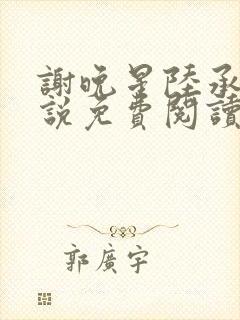 謝晚星陸承
說免費閱讀
郭廣宇